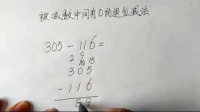 被减数中间有0的退位减法
305-116=
2 9
10 15
305
-116
89